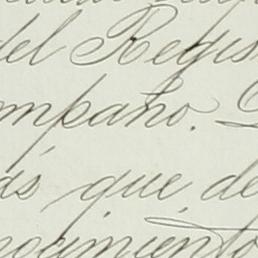 del Regis
mpaño.
ás que de
ocimiento